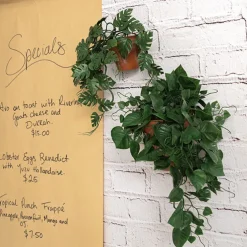 Specials
on toast with
Goats cheese and
Dukkah.
$18.00
Lobster Eggs Benedict
with Yuzu Hollandaise.
$25
Tropical Punch Frappé
Pineapple, Passionfruit, Mango and
OJ
$7.50